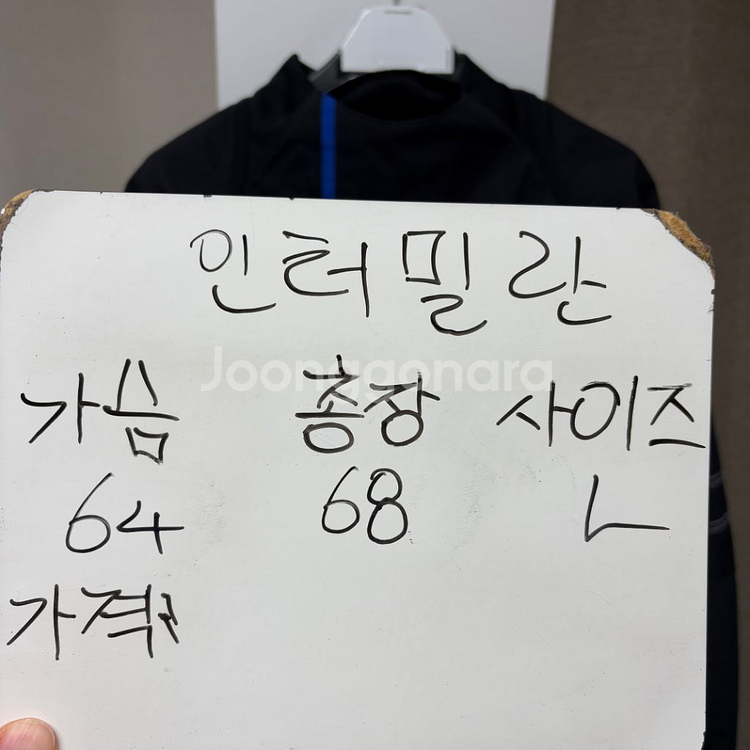 인터밀란
Joonggonara
가슴 총장 사이즈
64 68 L
가격